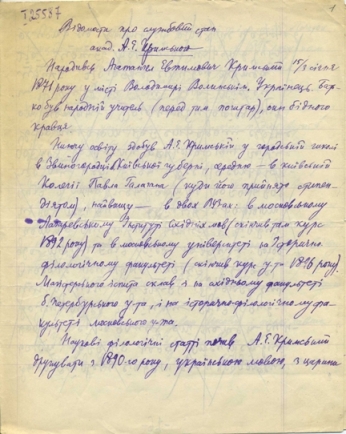 I.25537
1
Відомости про службовий стан
акад. А.Е. Кримського
Народивсь Агатангел Євтимович Кримський 15/3 січня
1871 року у місті Володимирі Волинськім, Українець. Бать-
ко був народній учитель (перед тим почтар), син бідного
кравця.
Нижчу освіту здобув А.Е. Кримський у городській школі
в Звенигородці Київської губерні, середню – в київській
Колегії Павла Галагана (куди його прийнято стипен-
діятом), найвищу – в двох ВУЗах: в московському
Лазаревському Інституті східніх мов (скінчив там курс
1892 року) та в московському університеті на Історично-
філологічному факультеті (скінчив курс у-та 1896 року).
Магістерського іспита склав з на східньому факультеті
б. Петербурзького у-та, і на історично-філологічному фа-
культеті московського у-та.
Наукові філологічні статті почав А.Е. Кримський
друкувати з 1890-го року, українською мовою, з царини